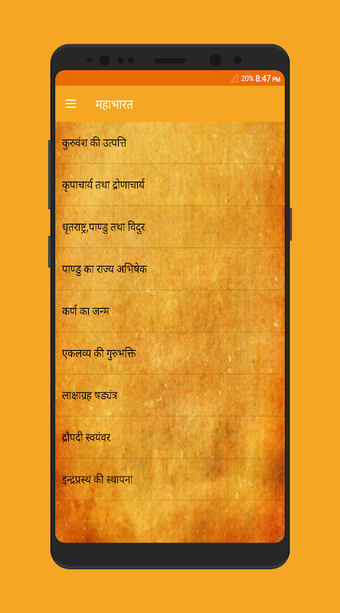 20% 8:47 PM
महाभारत
कुरुवंश की उत्पत्ति
कृपाचार्य तथा द्रोणाचार्य
धृतराष्ट्र,पाण्डु तथा विदुर
पाण्डु का राज्य अभिषेक
कर्ण का जन्म
एकलव्य की गुरुभक्ति
लाक्षाग्रह षड्यंत्र
द्रौपदी स्वयंवर
इन्द्रप्रस्थ की स्थापना